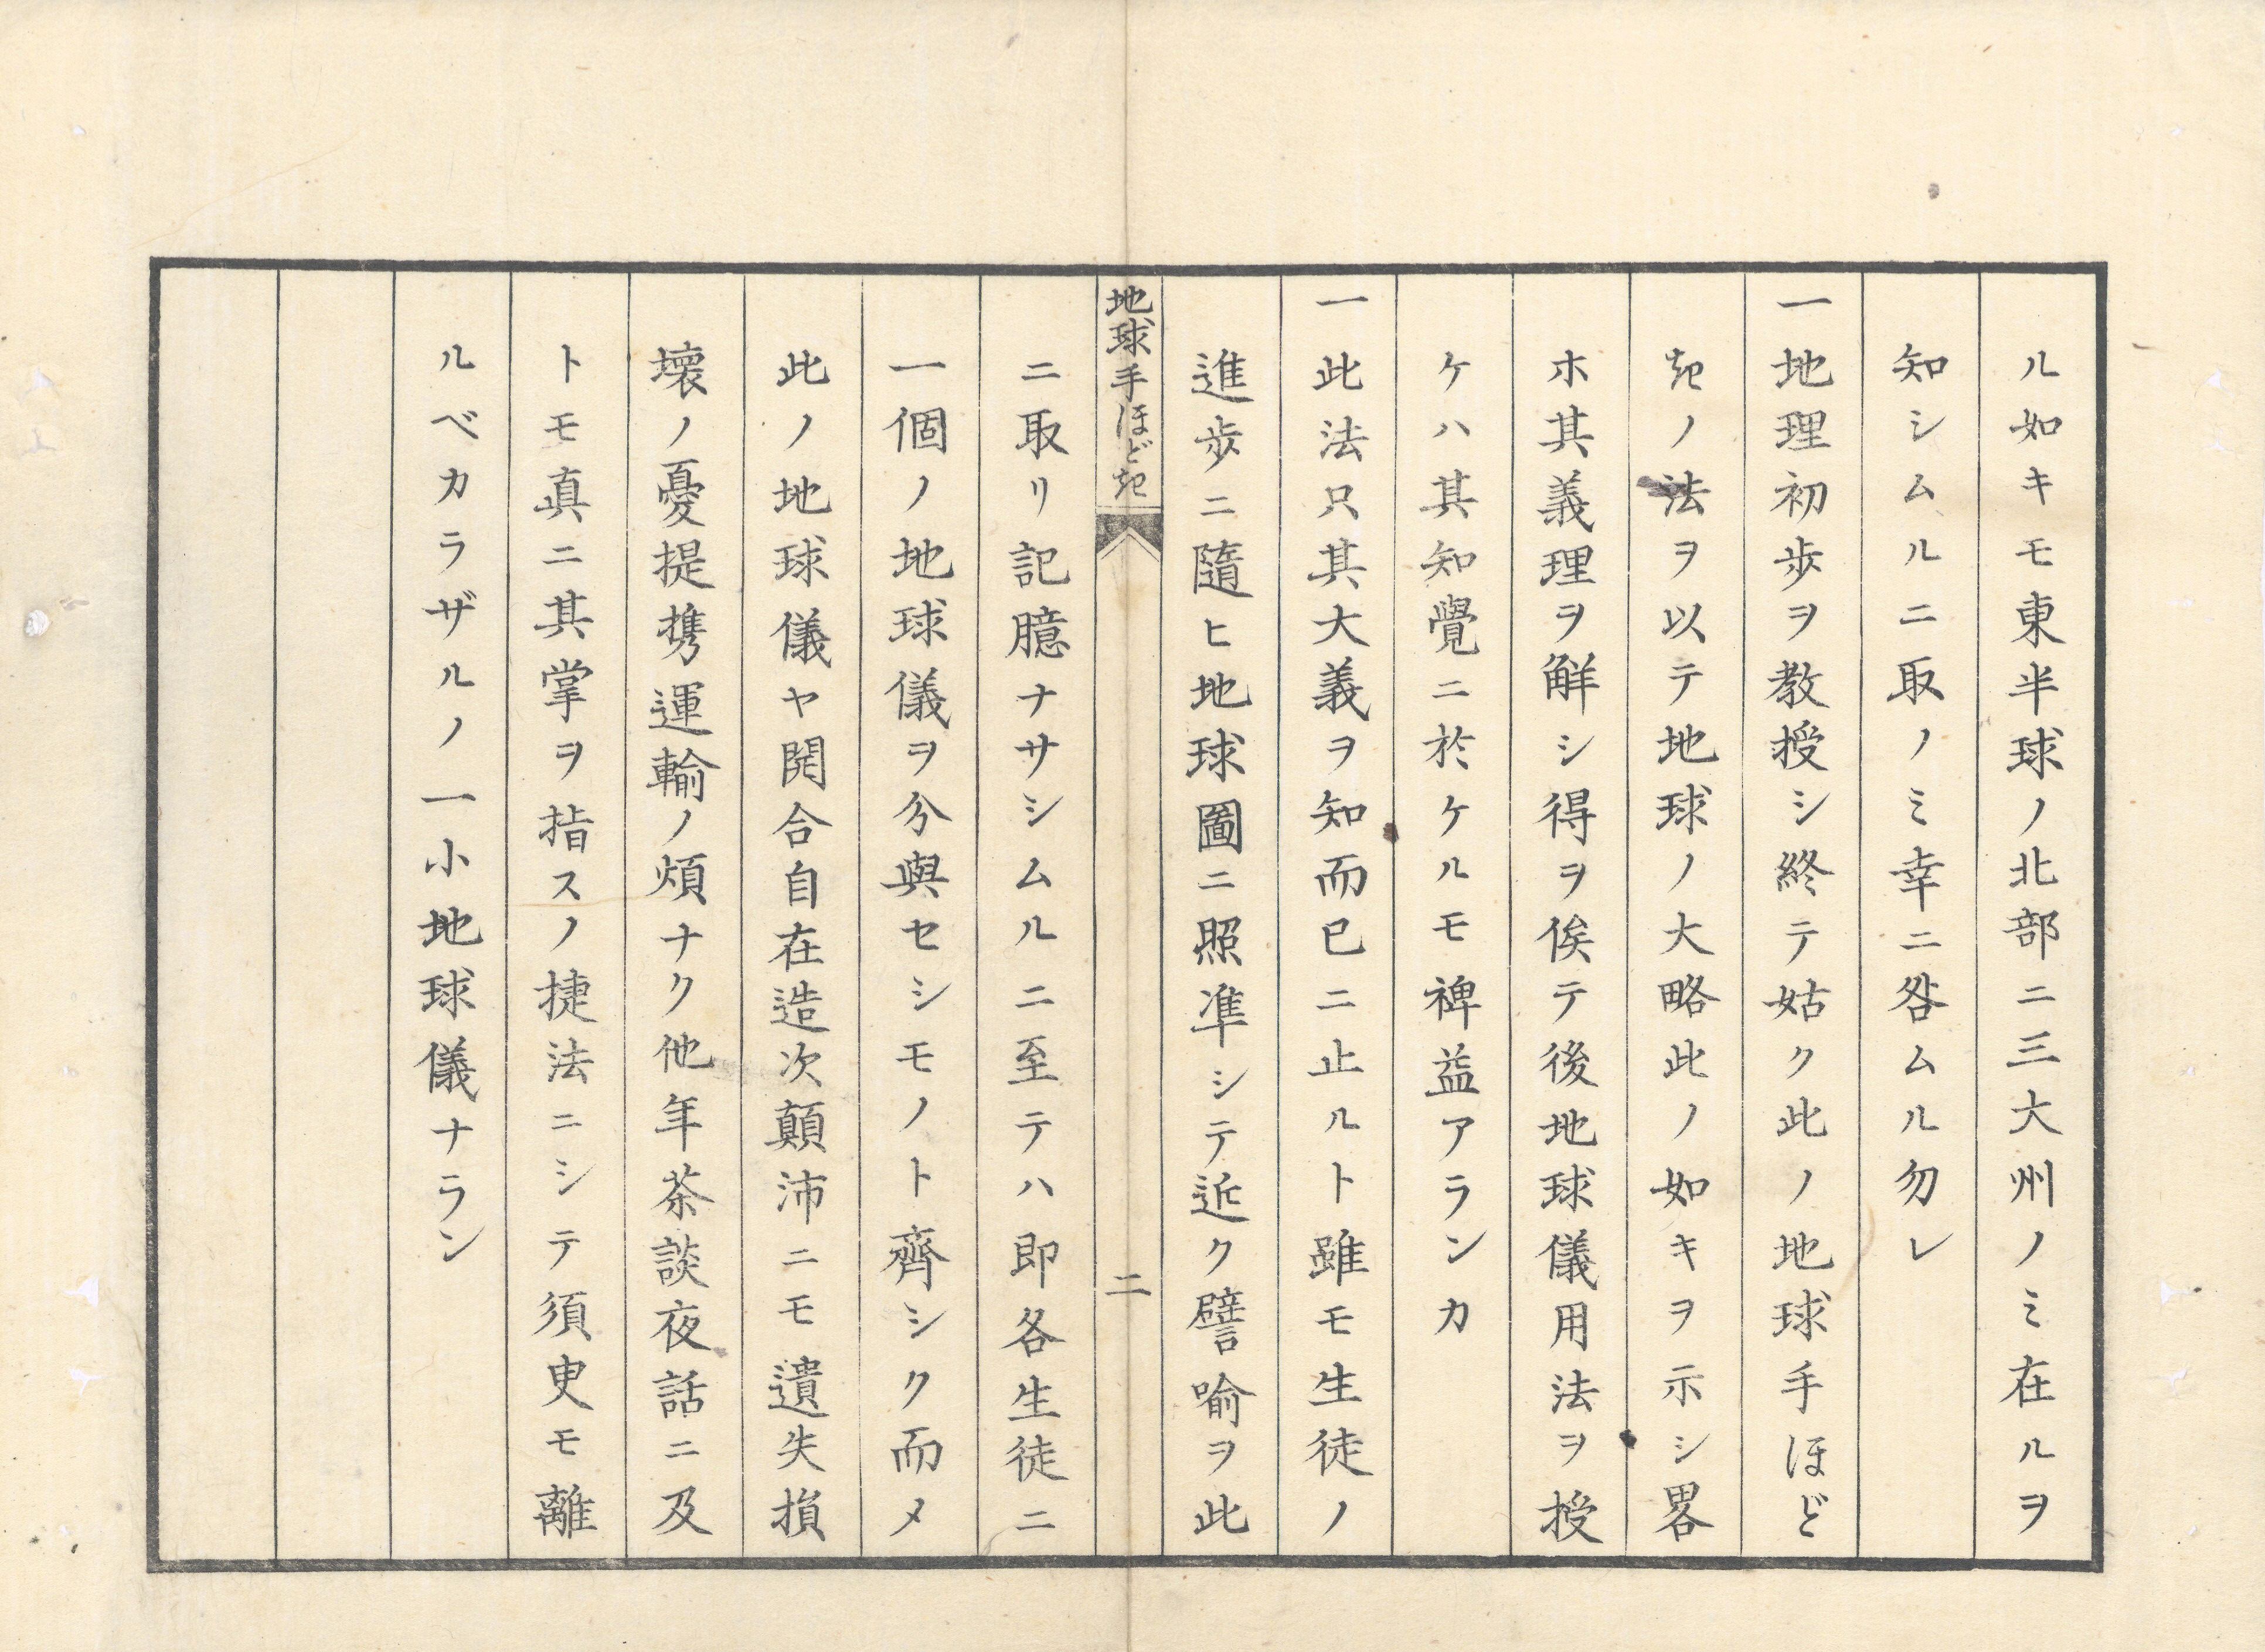 ル如キモ東半球ノ北部ニ三大州ノミ在ルヲ
知シムルニ取ノミ幸ニ咎ムル勿レ
一地理初歩ヲ教授シ終テ姑ク此ノ地球手ほど
きノ法ヲ以テ地球ノ大略此ノ如キヲ示シ畧
ホ其義理ヲ解シ得ヲ俟テ後地球儀用法ヲ授
ケハ其知覺ニ於ケルモ裨益アランカ
一此法只其大義ヲ知而已ニ止ルト雖モ生徒ノ
進歩ニ隨ヒ地球圖ニ照準シテ近ク譬喻ヲ此
地球手ほどき 二
ニ取リ記臆ナサシムルニ至テハ即各生徒ニ
一個ノ地球儀ヲ分與セシモノト齊シク而メ
此ノ地球儀ヤ開合自在造次顛沛ニモ遺失損
壞ノ憂提携運輸ノ煩ナク他年茶談夜話ニ及
トモ真ニ其掌ヲ指スノ捷法ニシテ須臾モ離
ルベカラザルノ一小地球儀ナラン